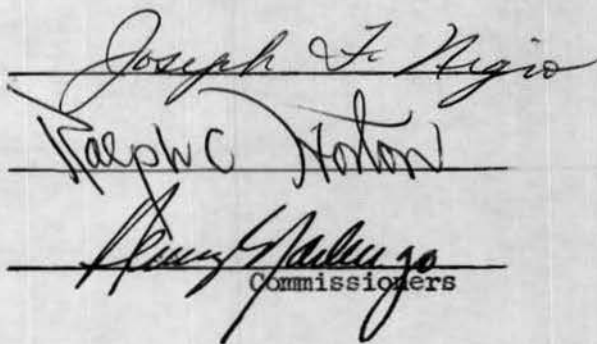 Joseph F. Nigro
Ralph C Horton
Henry
Commissioners